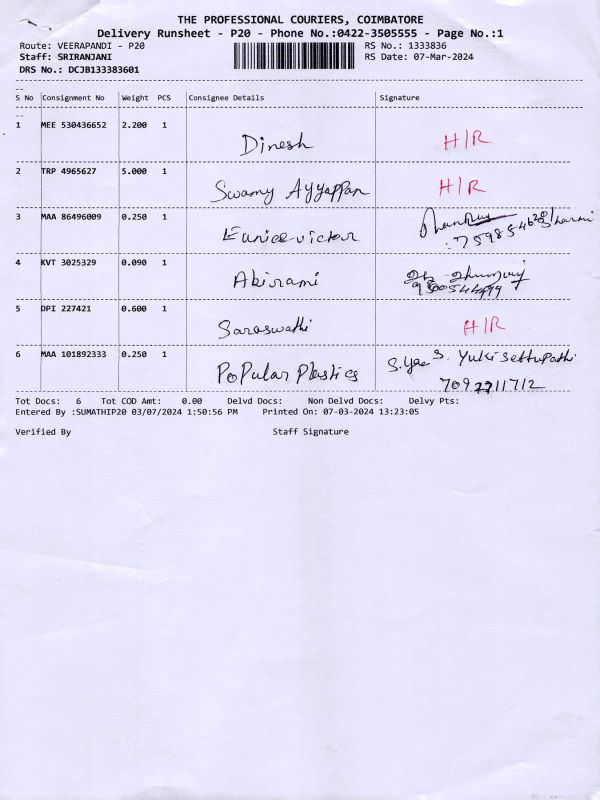 THE PROFESSIONAL COURIERS, COIMBATORE
Delivery Runsheet - P20 - Phone No.:0422-3505555 - Page No.:1
Route: VEERAPANDI - P20 RS No.: 1333836
Staff: SRIRANJANI RS Date: 07-Mar-2024
DRS No.: DCJB133383601
--
S No Consignment No Weight PCS Consignee Details Signature
--
1 MEE 530436652 2.200 1 Dinesh H/R
2 TRP 4965627 5.000 1 Swamy Ayyappan H/R
3 MAA 86496009 0.250 1 Eunice victor
4 KVT 3025329 0.090 1 Abirami
5 DPI 227421 0.600 1 Saraswathi H/R
6 MAA 101892333 0.250 1 PoPular Plastics Yuki settupathi
7092711712
Tot Docs: 6 Tot COD Amt: 0.00 Delvd Docs: Non Delvd Docs: Delvy Pts:
Entered By :SUMATHIP20 03/07/2024 1:50:56 PM Printed On: 07-03-2024 13:23:05
Verified By Staff Signature